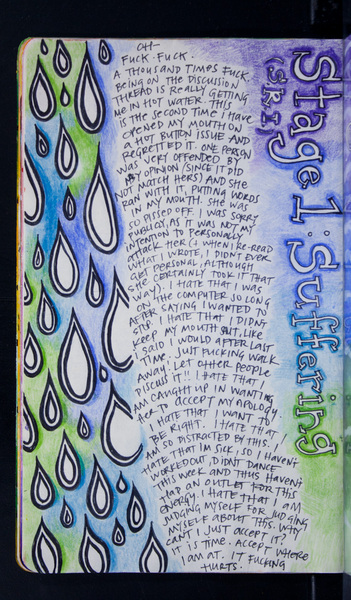 OH-
FUCK. FUCK.
A THOUSAND TIMES FUCK.
BEING ON THE DISCUSSION
THREAD IS REALLY GETTING
ME IN HOT WATER. THIS
IS THE SECOND TIME I HAVE
OPENED MY MOUTH ON
A HOT BUTTON ISSUE AND
REGRETTED IT. ONE PERSON
WAS VERY OFFENDED BY
MY OPINION (SINCE IT DID
NOT MATCH HERS) AND SHE
RAN WITH IT, PUTTING WORDS
IN MY MOUTH. SHE WAS
SO PISSED OFF. I WAS SORRY
PUBLICLY, AS IT WAS NOT MY
INTENTION TO PERSONALLY
ATTACK HER (& WHEN I RE-READ
WHAT I WROTE, I DIDN'T EVER
GET PERSONAL, ALTHOUGH
SHE CERTAINLY TOOK IT THAT
WAY). I HATE THAT I WAS
ON THE COMPUTER SO LONG
AFTER SAYING I WANTED TO
STOP. I HATE THAT I DIDN'T
KEEP MY MOUTH SHUT, LIKE
I SAID I WOULD AFTER LAST
TIME. JUST FUCKING WALK
AWAY! LET OTHER PEOPLE
DISCUSS IT!! I HATE THAT I
AM CAUGHT UP IN WANTING
HER TO ACCEPT MY APOLOGY.
I HATE THAT I WANT TO
BE RIGHT. I HATE THAT I
AM SO DISTRACTED BY THIS. I
HATE THAT I'M SICK, SO I HAVEN'T
WORKED OUT, DIDN'T DANCE
THIS WEEK AND THUS HAVEN'T
HAD AN OUTLET FOR THIS
ENERGY. I HATE THAT I AM
JUDGING MYSELF FOR JUDGING
MYSELF ABOUT THIS. WHY
CAN'T I JUST ACCEPT IT?
IT IS TIME. ACCEPT WHERE
I AM AT. IT FUCKING
HURTS.
Stage 1: Suffering
(SRI)